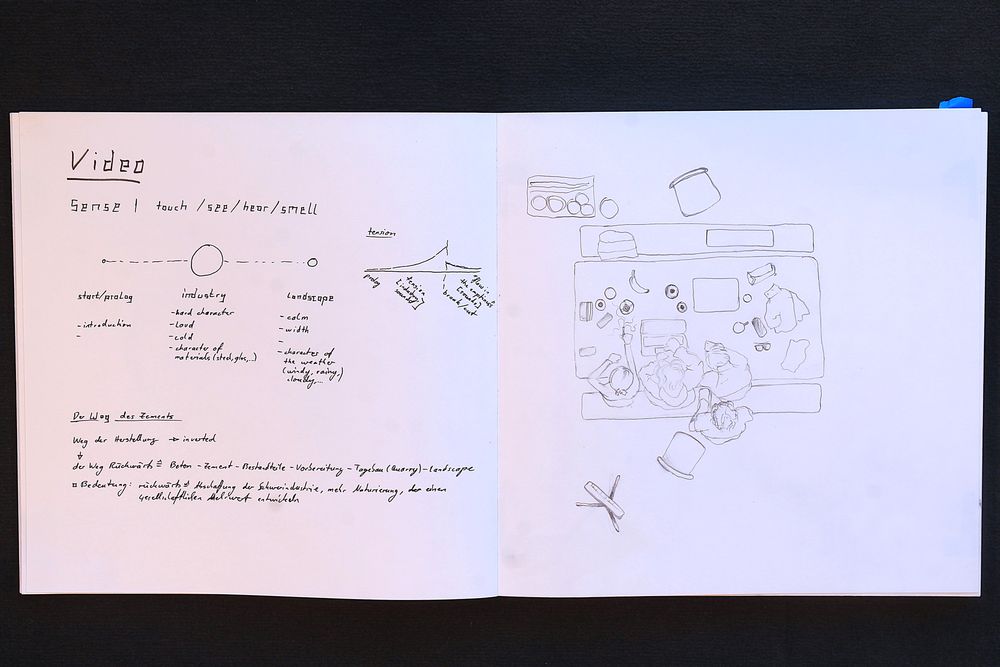 Video
Sense | touch / see / hear / smell
tension
prolog
tension
[industry
break/cut
flow in
start/prolog
- introduction
-
industry
- hard character
- loud
- cold
- character of
materials (steel, glas,..)
Landscape
- calm
- width
-
- character of
the weather
(windy, rainy,
cloudy,...
Der Weg des Zements
Weg der Herstellung → inverted
der Weg Rückwärts ≙ Beton - Zement - Bestandteile - Vorbereitung - Tagebau (Quarry) - landscape
Bedeutung: rückwärts Abschaffung der Schwerindustrie, mehr Naturierung, der einen
gesellschaftlichen Mehrwert entwickeln